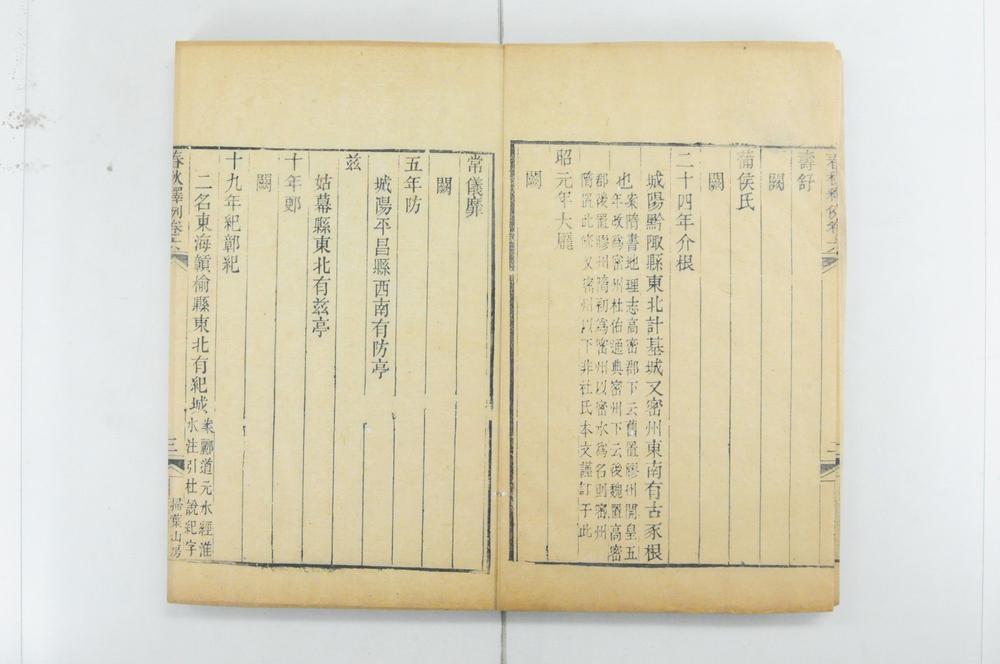 春秋釋例卷六
二
壽舒
闕
蒲侯氏
闕
二十四年介根
城陽黔陬縣東北計基城又密州東南有古豕根
也案隋書地理志高密郡下云舊置膠州開皇五
年改爲密州杜佑通典密州下云後魏置高密
郡後置膠州隋初爲密州以密水爲名則密州
隋置此條又密州以下非杜氏本文謹訂于此
昭元年大厖
闕
常儀靡
闕
五年防
城陽平昌縣西南有防亭
兹
姑幕縣東北有兹亭
十年鄭
闕
十九年紀鄣紀
二名東海贛榆縣東北有紀城
案酈道元水經淮
水注引杜說紀字
春秋釋例卷六
三
掃葉山房